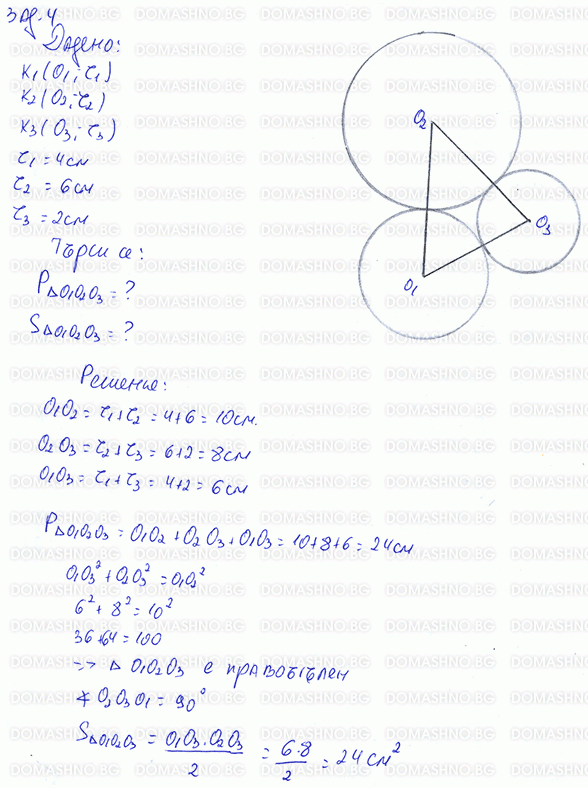 Зад. 4
Дадено:
K₁(O₁; r₁)
K₂(O₂; r₂)
K₃(O₃; r₃)
r₁ = 4см
r₂ = 6см
r₃ = 2см
Търси се:
P△O₁O₂O₃ = ?
S△O₁O₂O₃ = ?
O₂
O₃
O₁
Решение:
O₁O₂ = r₁+r₂ = 4+6 = 10см.
O₂O₃ = r₂+r₃ = 6+2 = 8см
O₁O₃ = r₁+r₃ = 4+2 = 6см
P△O₁O₂O₃ = O₁O₂ + O₂O₃ + O₁O₃ = 10+8+6 = 24см
O₁O₃² + O₂O₃² = O₁O₂²
6² + 8² = 10²
36+64 = 100
=> △ O₁O₂O₃ е правоъгълен
∢ O₂O₃O₁ = 90°
S△O₁O₂O₃ = O₁O₃.O₂O₃ / 2 = 6.8 / 2 = 24см²
DOMASHNO.BG